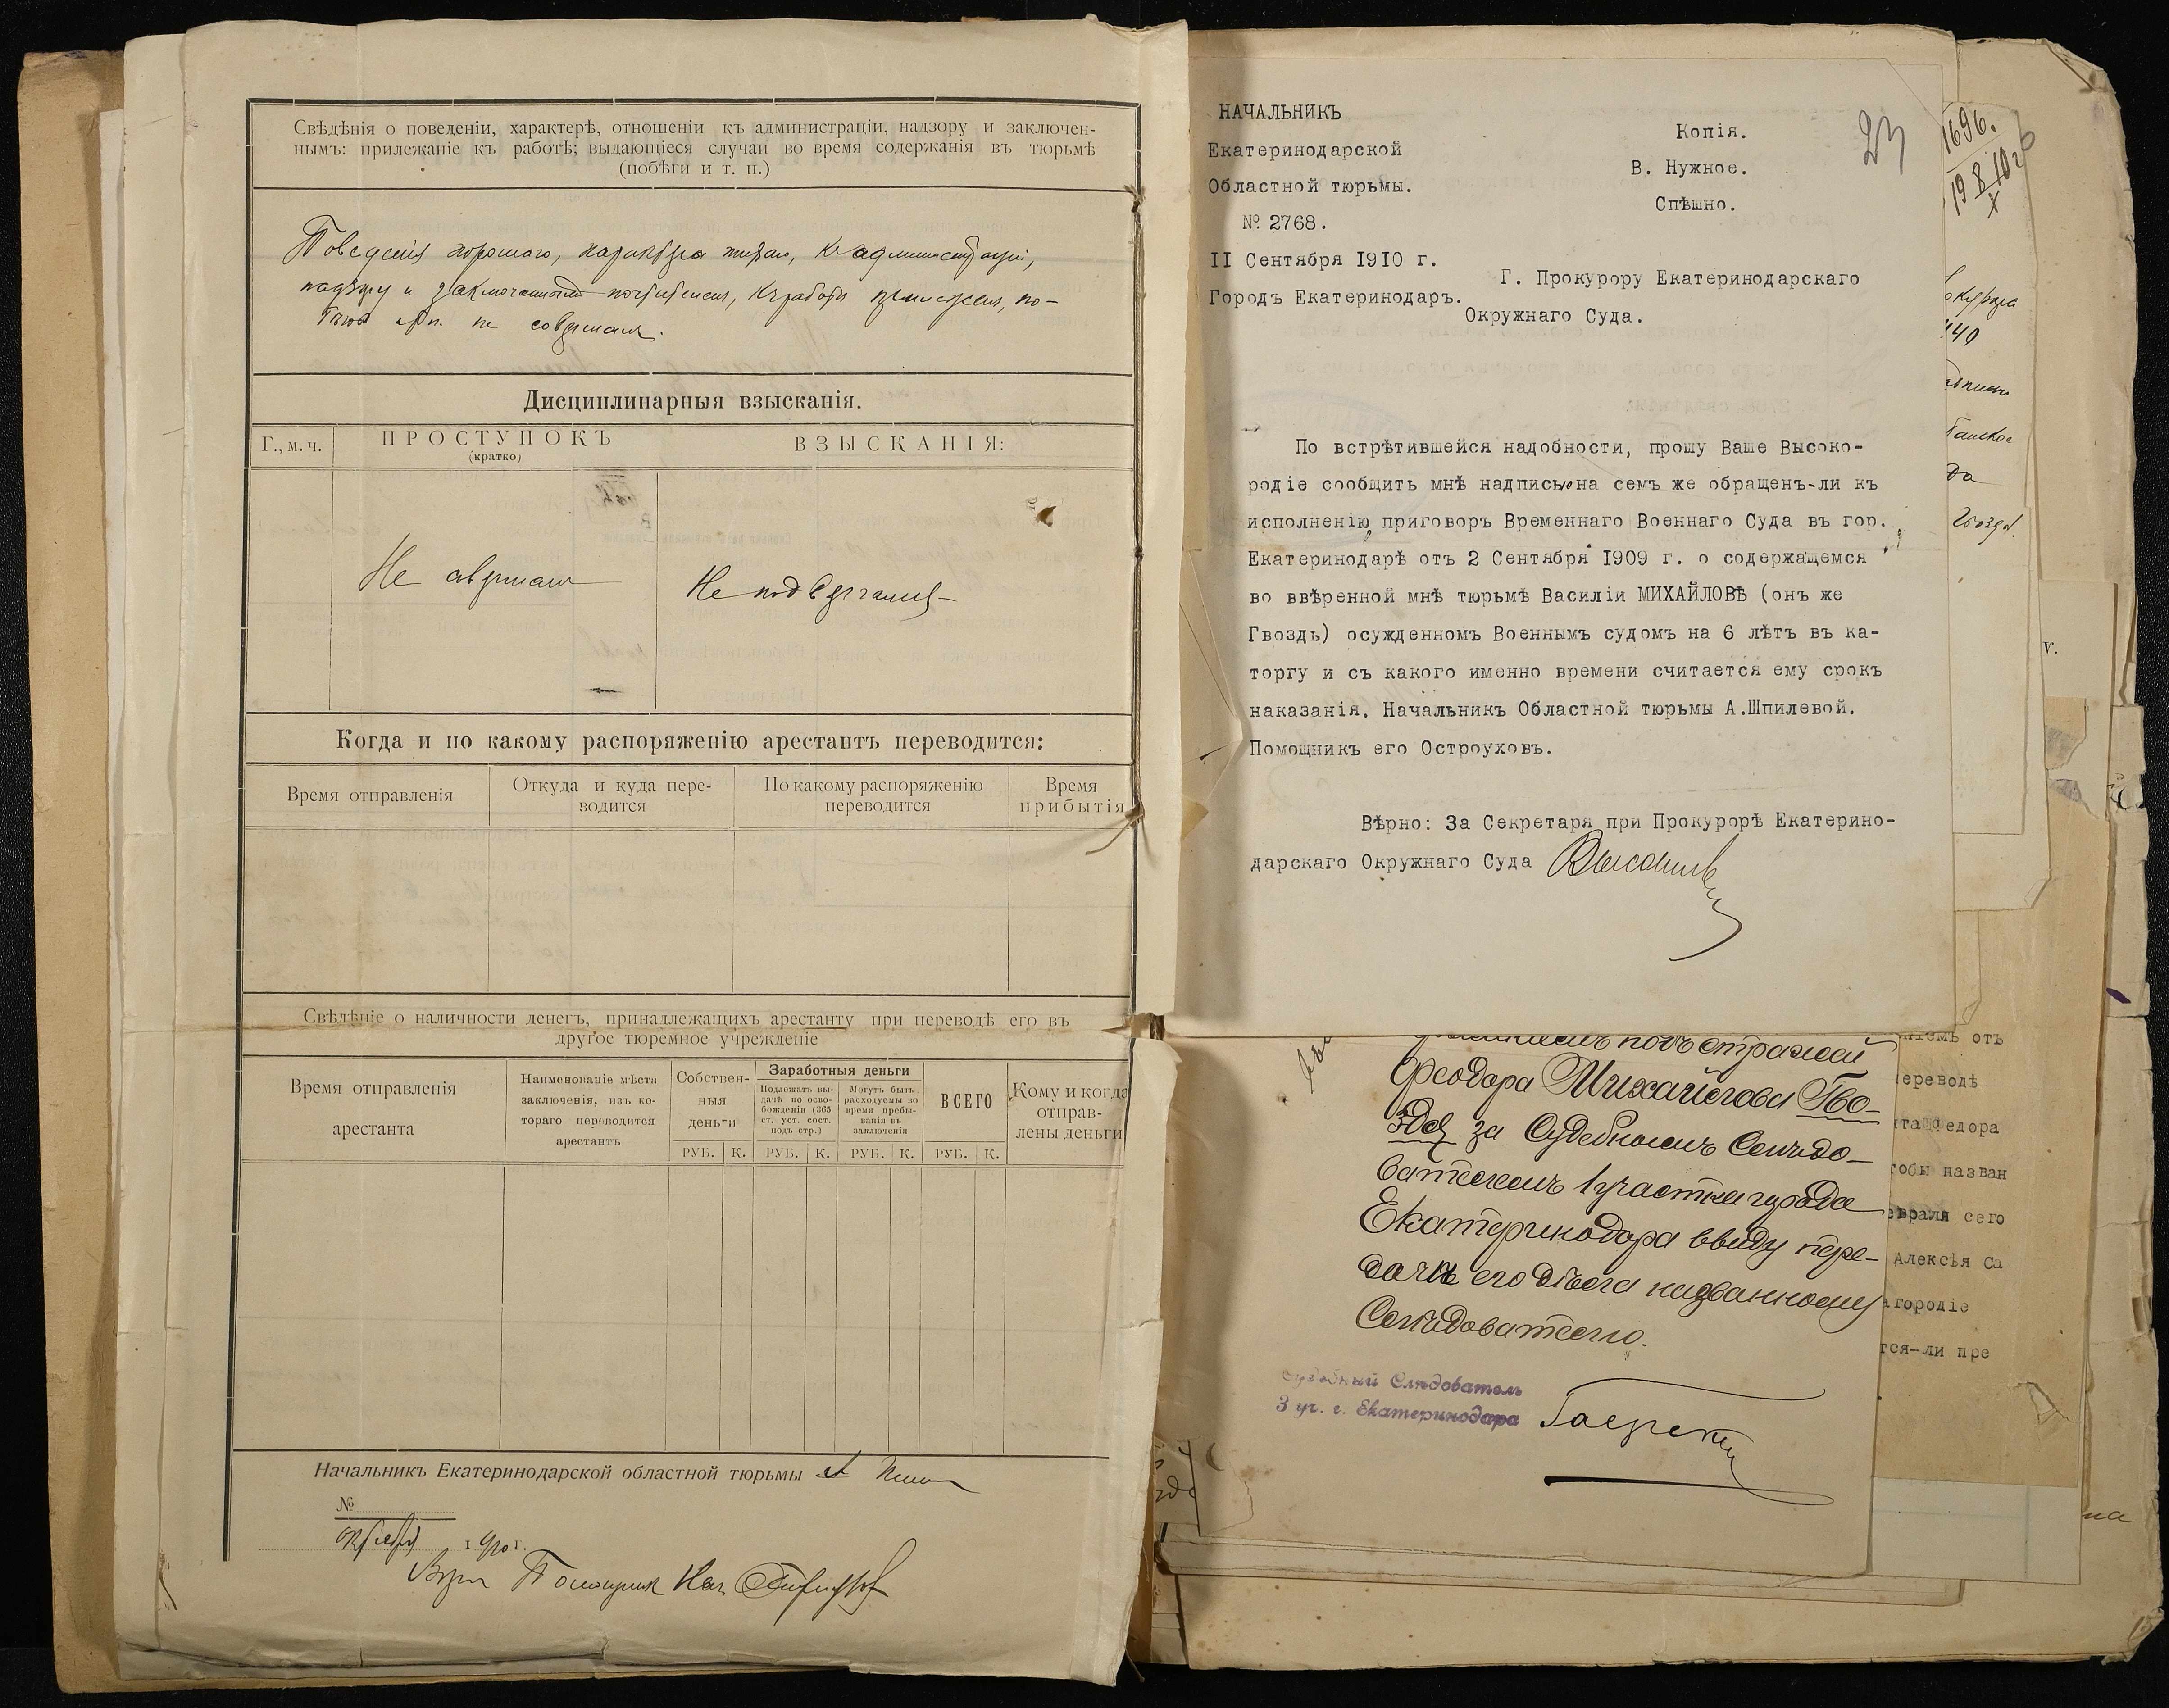 Свѣдѣнія о поведеніи, характерѣ, отношеніи къ администраціи, надзору и заключен-
нымъ: прилежаніе къ работѣ; выдающіеся случаи во время содержанія въ тюрьмѣ
(побѣги и т. п.)
Поведенія хорошаго, характера тихаго, къ администраціи,
надзору и заключеннымъ почтителенъ, къ работѣ прилеженъ, по-
не совершалъ.
Дисциплинарныя взысканія.
Г., м. ч.
ПРОСТУПОКЪ
(кратко)
ВЗЫСКАНІЯ:
Не совершалъ
Не подвергался
Когда и по какому распоряженію арестантъ переводится:
Время отправленія
Откуда и куда пере-
водится
По какому распоряженію
переводится
Время
прибытія
Свѣдѣніе о наличности денегъ, принадлежащихъ арестанту при переводѣ его въ
другое тюремное учрежденіе
Время отправленія
арестанта
Наименованіе мѣста
заключенія, изъ ко-
тораго переводится
арестантъ
Собствен-
ныя
деньги
Заработныя деньги
Подлежатъ вы-
дачѣ по осво-
божденіи (365
ст. уст. сост.
подъ стр.)
Могутъ быть
расходуемы во
время пребы-
ванія въ
заключеніи
ВСЕГО
Кому и когда
отправ-
лены деньги
РУБ. К. РУБ. К. РУБ. К. РУБ. К.
Начальникъ Екатеринодарской областной тюрьмы
№
октября 1910 г.
Помощник Нач
НАЧАЛЬНИКЪ
Екатеринодарской
Областной тюрьмы.
№ 2768.
II Сентября I9I0 г.
Городъ Екатеринодаръ.
Копія.
В. Нужное.
Спѣшно.
23
Г. Прокурору Екатеринодарскаго
Окружнаго Суда.
По встрѣтившейся надобности, прошу Ваше Высоко-
родіе сообщить мнѣ надписью на семъ же обращенъ-ли къ
исполненію приговоръ Временнаго Военнаго Суда въ гор.
Екатеринодарѣ отъ 2 Сентября I909 г. о содержащемся
во ввѣренной мнѣ тюрьмѣ Василіи МИХАЙЛОВѢ (онъ же
Гвоздь) осужденномъ Военнымъ судомъ на 6 лѣтъ въ ка-
торгу и съ какого именно времени считается ему срокъ
наказанія. Начальникъ Областной тюрьмы А.Шпилевой.
Помощникъ его Остроуховъ.
Вѣрно: За Секретаря при Прокурорѣ Екатерино-
дарскаго Окружнаго Суда
подъ стражей
Феодора Михайлова Гво-
здя за Судебнымъ Слѣдо-
вателемъ 1 участка города
Екатеринодара ввиду пере-
дачи его дѣла названному
Слѣдователю.
Судебный Слѣдователь
3 уч. г. Екатеринодара
1696.
19 8/X 10 г
440
да
Гвоздя.
V.
отъ
переводѣ
Федора
чтобы назван
евраля сего
Алексѣя Са
агородіе
тся-ли пре
на